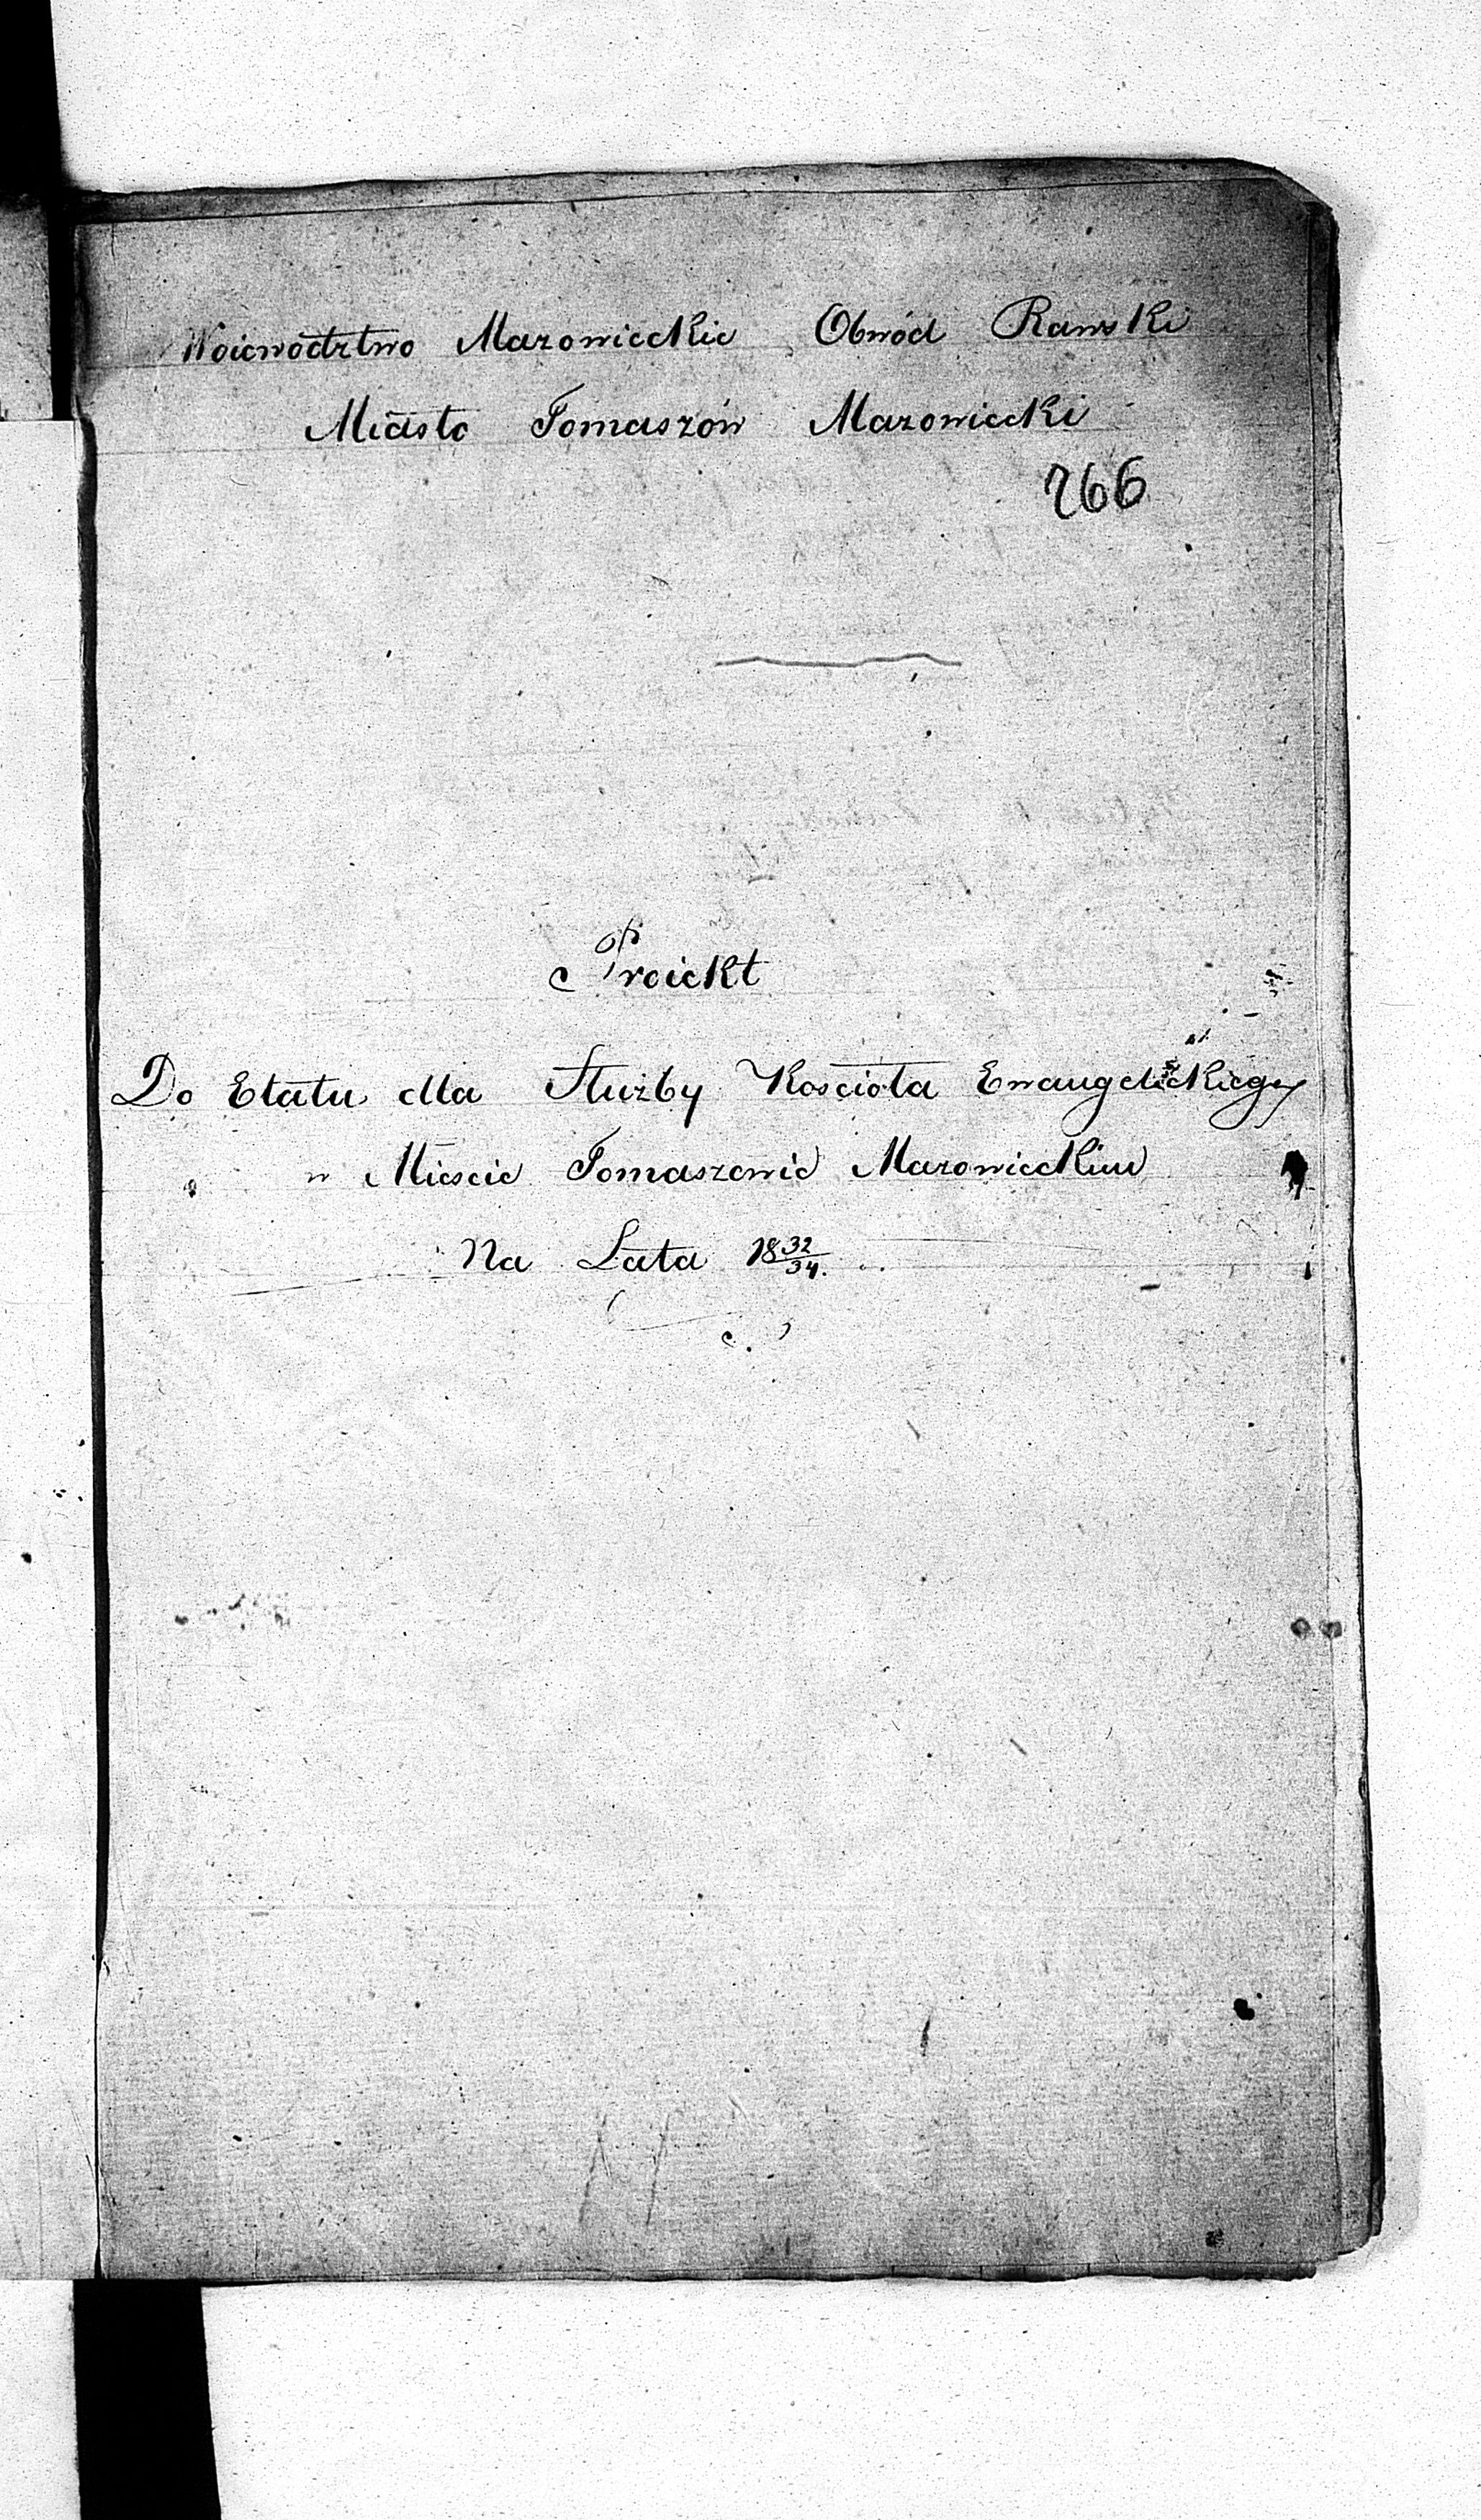 Woiewództwo Mazowieckie Obwód Rawski
Miasto Tomaszów Mazowiecki
266
Proiekt
Do Etatu dla Służby Kościoła Ewangelickiego
w Mieście Tomaszewie Mazowieckim
Na Lata 18 32/34.